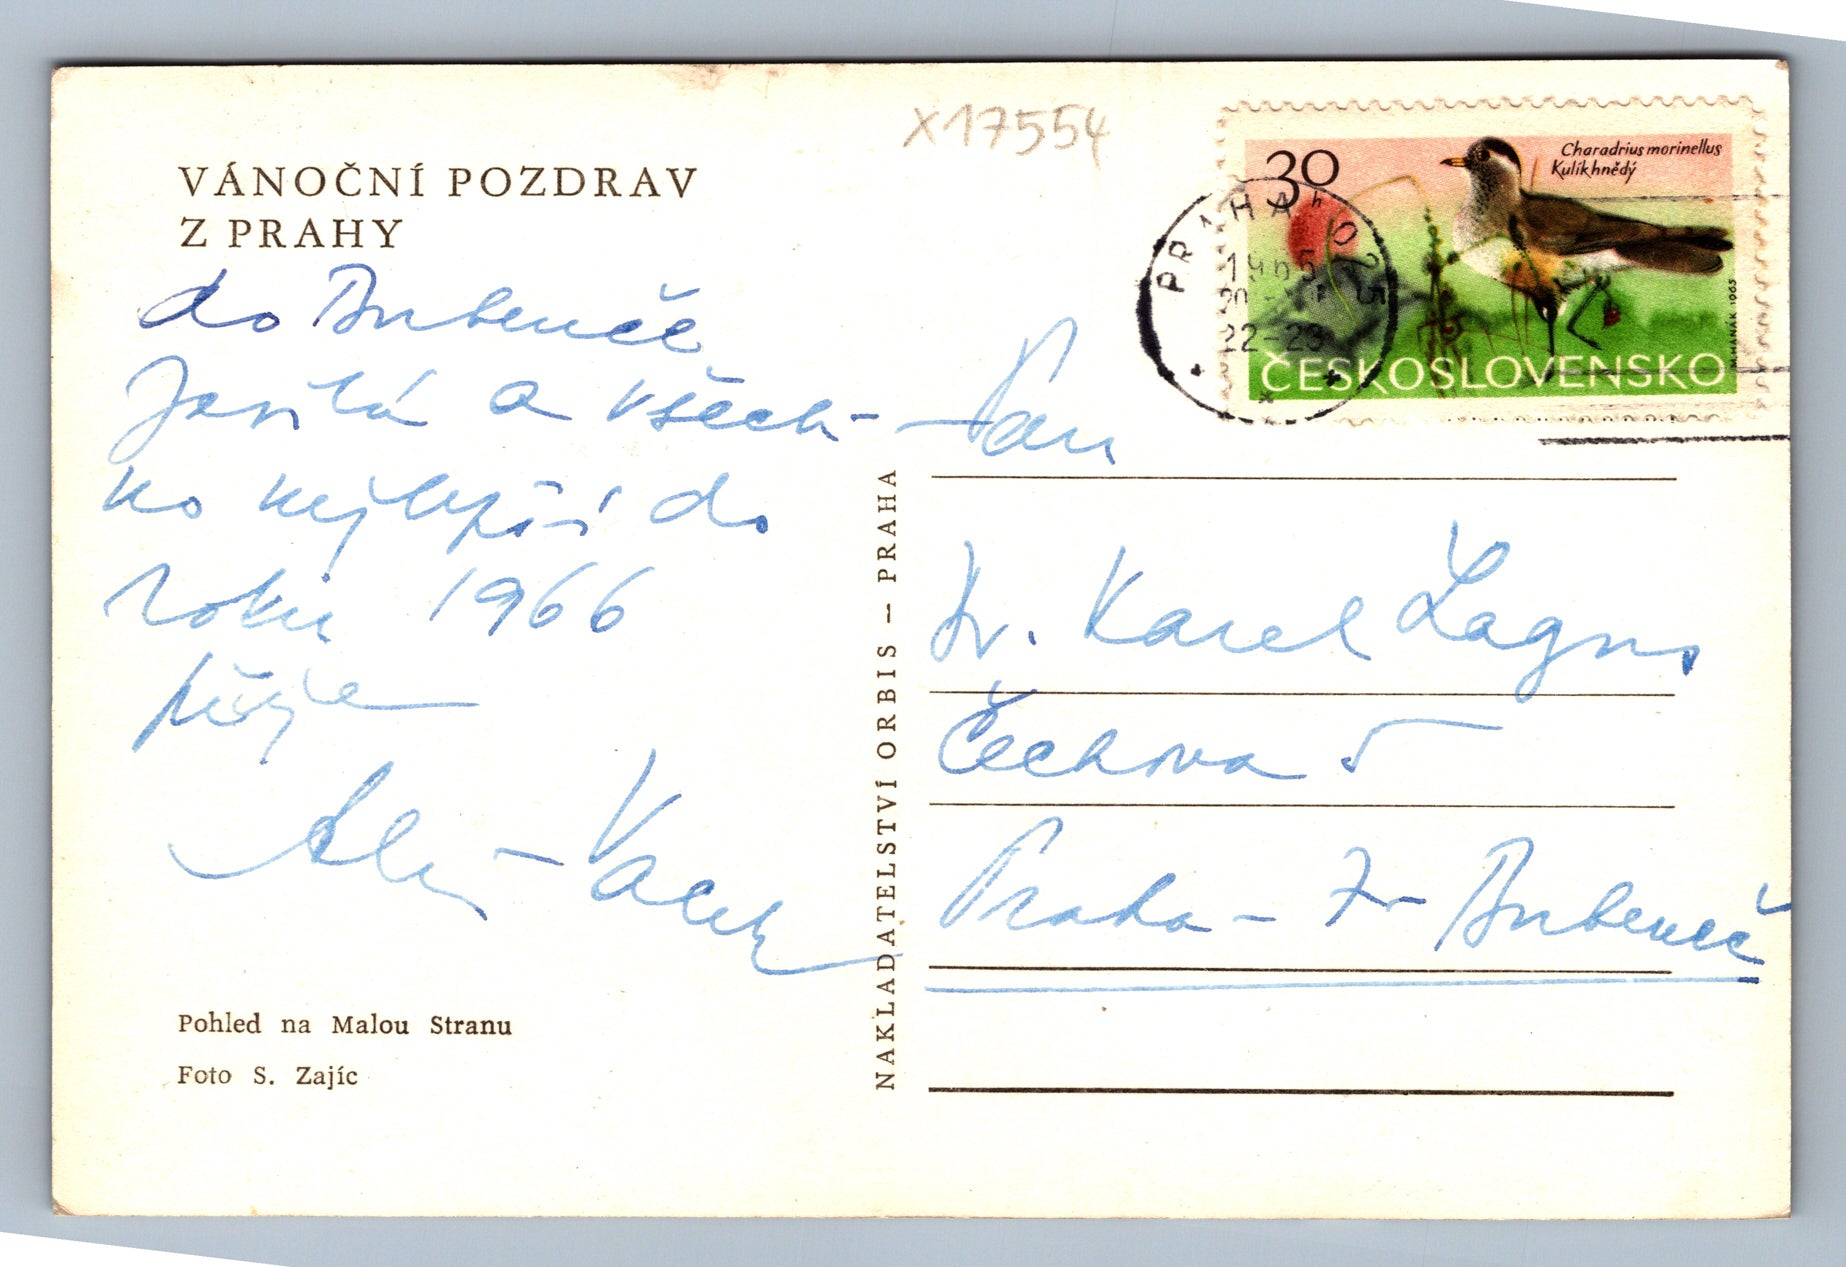 VÁNOČNÍ POZDRAV
Z PRAHY
do Bubenče
a všech-
no nejlepší do
roku 1966
přeje
Pohled na Malou Stranu
Foto S. Zajíc
NAKLADATELSTVÍ ORBIS – PRAHA
X17554
30
Charadrius morinellus
Kulík hnědý
M. HANÁK 1965
ČESKOSLOVENSKO
PRAHA
22-23
Pan
Dr. Karel
Čechova 5
Praha - 7 - Bubeneč